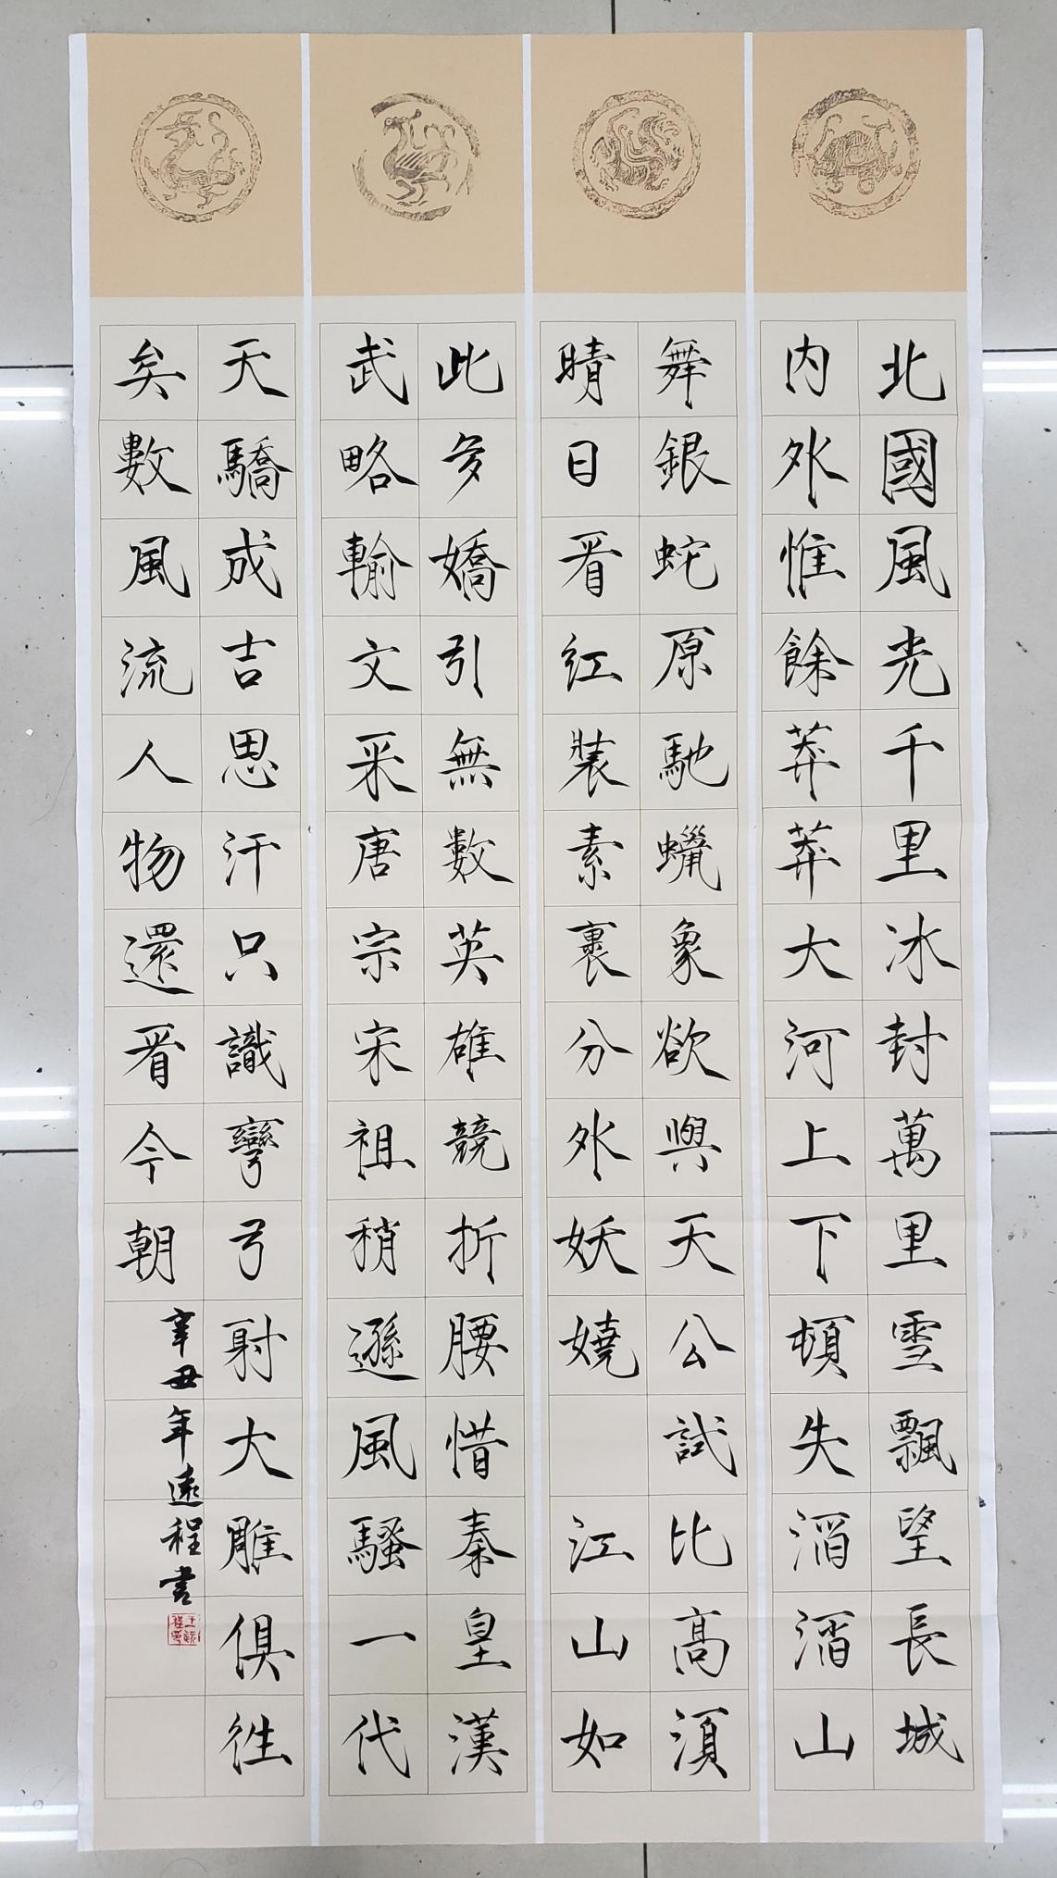 北國風光千里冰封萬里雪飄望長城
内外惟餘莽莽大河上下頓失滔滔山
舞銀蛇原馳蠟象欲與天公試比高須
晴日看紅裝素裹分外妖嬈 江山如
此多嬌引無數英雄競折腰惜秦皇漢
武略輸文采唐宗宋祖稍遜風騷一代
天驕成吉思汗只識彎弓射大雕俱往
矣數風流人物還看今朝
辛丑年遠程書